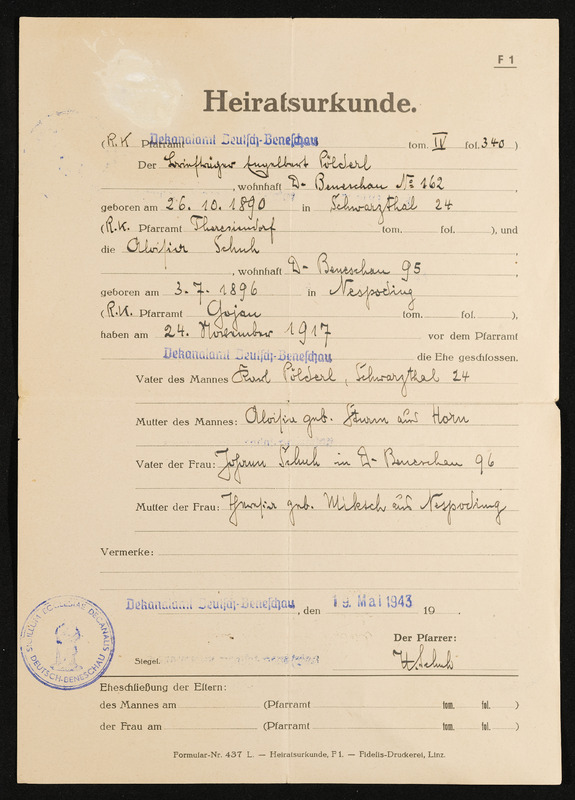 F 1
Heiratsurkunde.
(R.K. Pfarramt Dekanalamt Deutsch-Beneschau tom. IV fol. 340)
Der Briefträger Engelbert Pölderl
, wohnhaft D- Beneschau № 162,
geboren am 26. 10. 1890 in Schwarzthal 24
(R.K. Pfarramt Theresiendorf tom. fol. ), und
die Aloisia Schuh
, wohnhaft D- Beneschau 95,
geboren am 3. 7. 1896 in Nespoding
(R.K. Pfarramt Gojau tom. fol. ),
haben am 24. November 1917 vor dem Pfarramt
Dekanalamt Deutsch-Beneschau die Ehe geschlossen.
Vater des Mannes Karl Pölderl, Schwarzthal 24
Mutter des Mannes: Aloisia geb. Sturm aus Horn
Vater der Frau: Johann Schuh in D- Beneschau 96
Mutter der Frau: Theresia geb. Miksch aus Nespoding
Vermerke:
Dekanalamt Deutsch-Beneschau, den 19. Mai 1943 19 .
Der Pfarrer:
Siegel.
SIGILLUM ECCLESIAE DECANALIS DEUTSCH-BENESCHAU
Eheschließung der Eltern:
des Mannes am (Pfarramt tom. fol. )
der Frau am (Pfarramt tom. fol. )
Formular-Nr. 437 L. — Heiratsurkunde, F 1. — Fidelis-Druckerei, Linz.